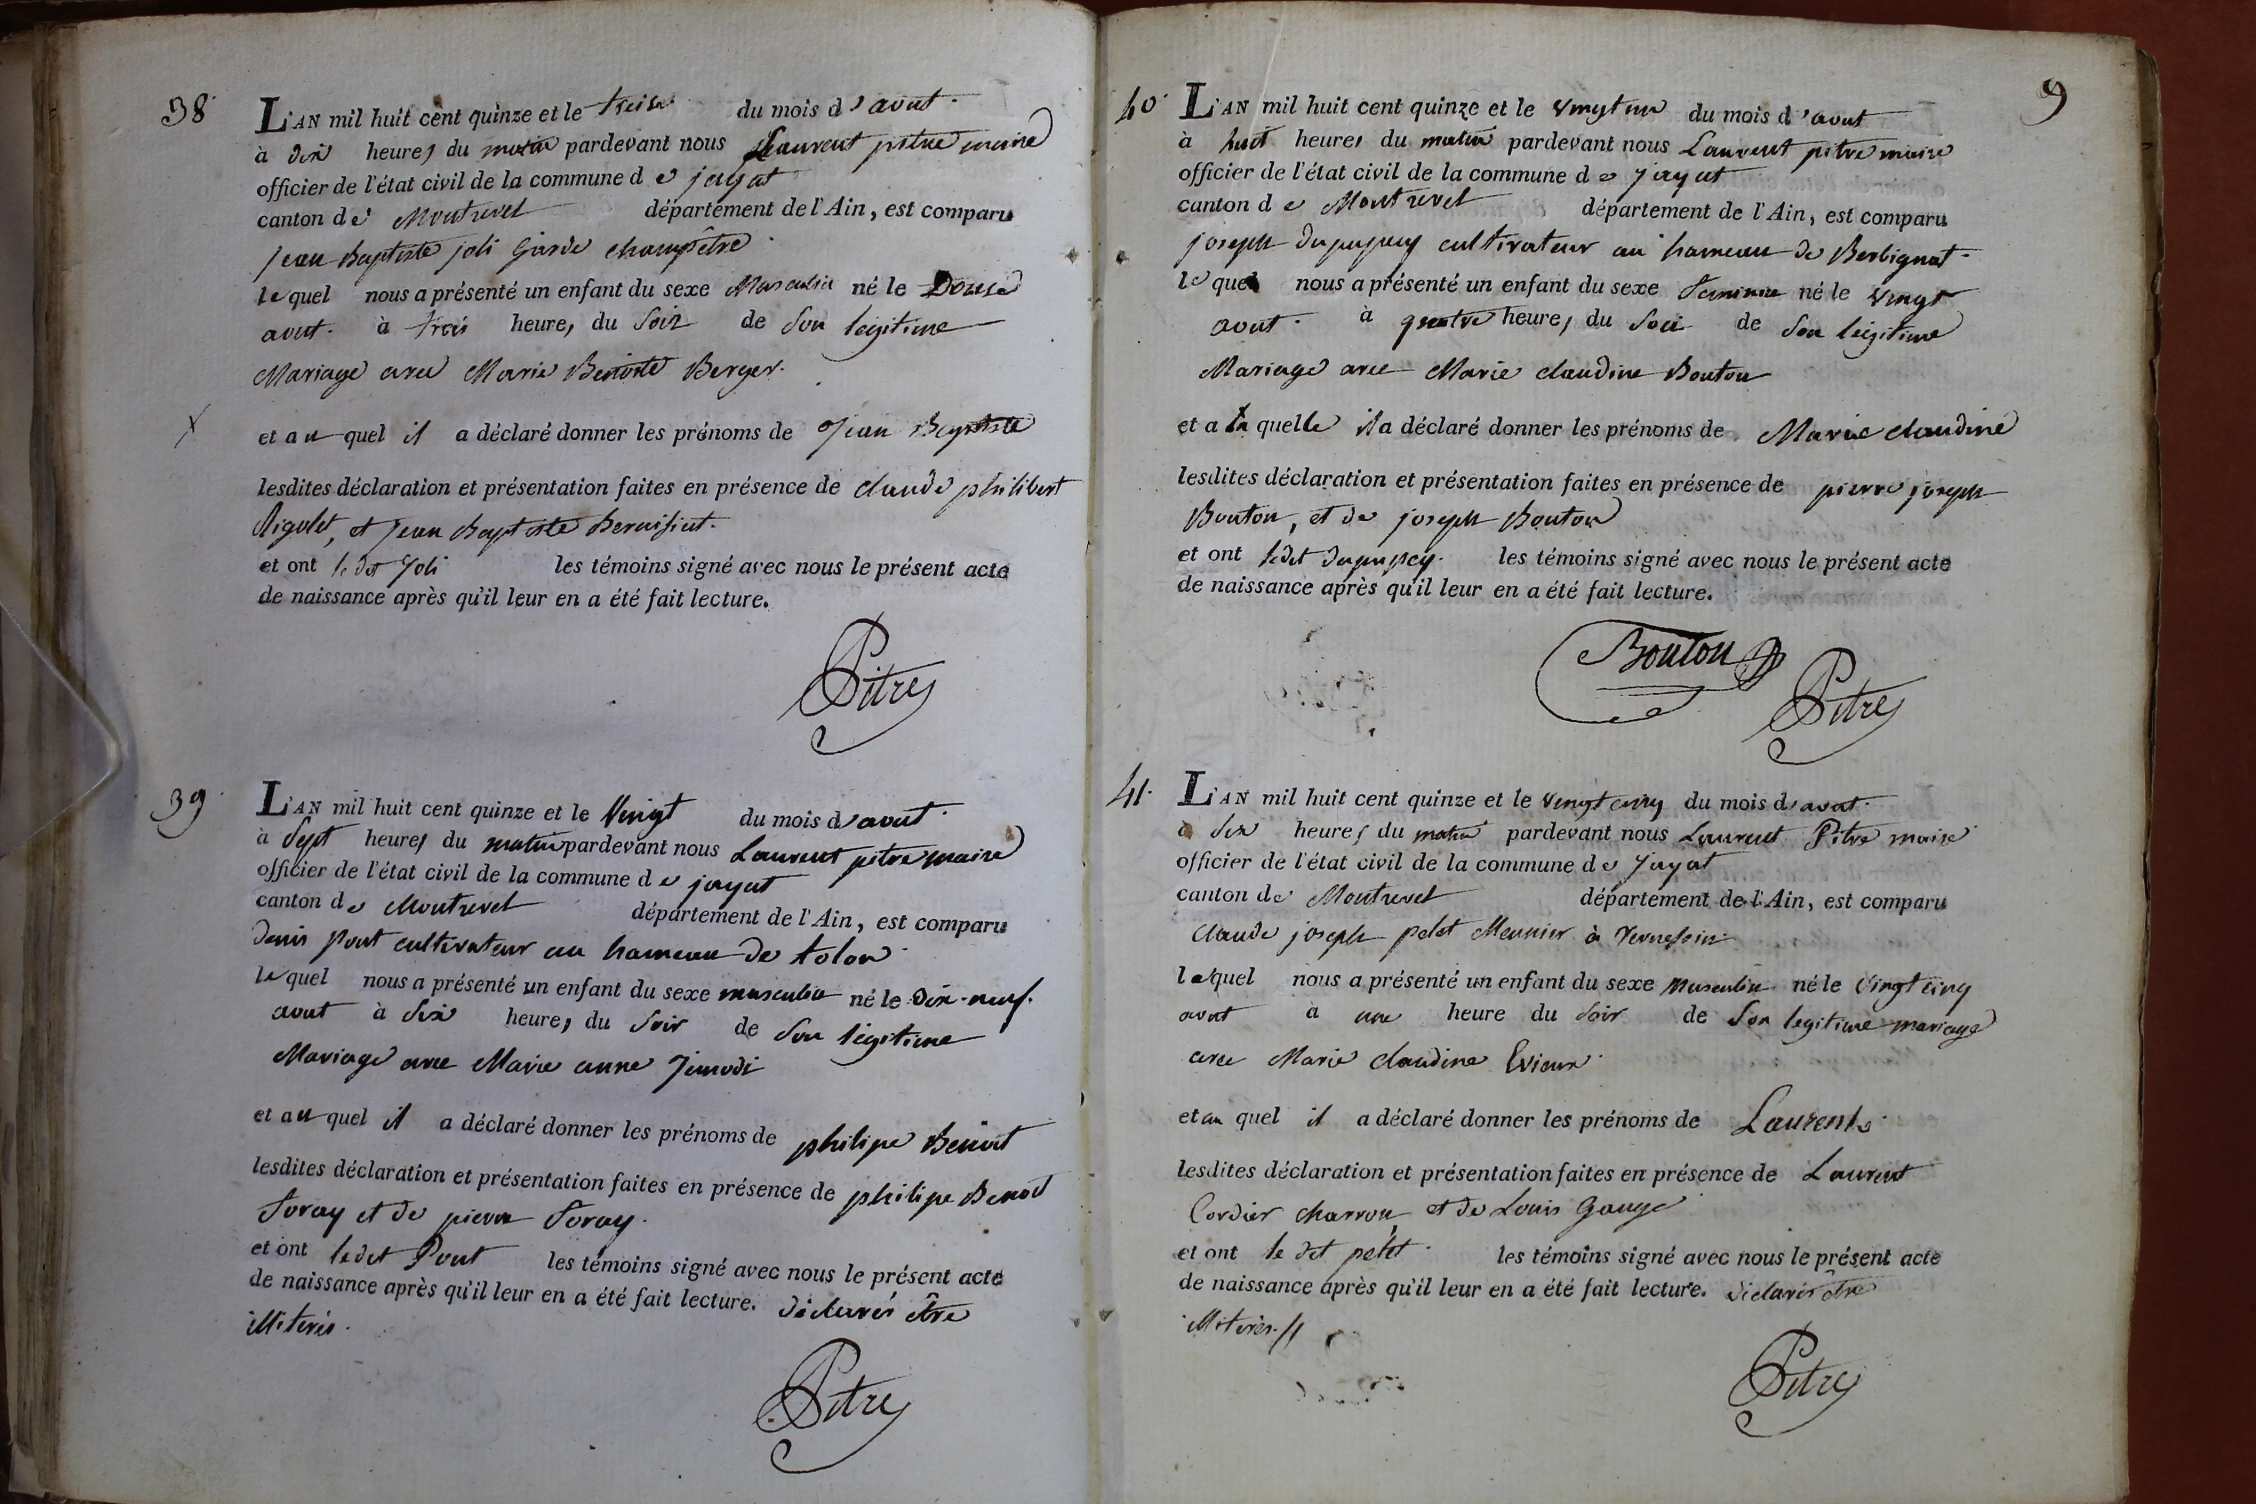 38
L'AN mil huit cent quinze et le treise du mois d'avut
à dix heures du matin pardevant nous Laurent pitre maire
officier de l'état civil de la commune de jayat
canton de Montrevel département de l'Ain, est comparu
jean Baptiste joli Garde champêtre
lequel nous a présenté un enfant du sexe Masculin né le Douse
avut. à trois heures du Soir de Son legitime
Mariage avec Marie Benoite Berger.
et au quel il a déclaré donner les prénoms de Jean Baptiste
lesdites déclaration et présentation faites en présence de claude philibert
Rigolet, et jean Baptiste
et ont ledit Joli les témoins signé avec nous le présent acte
de naissance après qu'il leur en a été fait lecture.
Pitre
39
L'AN mil huit cent quinze et le Vingt du mois d'avut
à Sept heures du matin pardevant nous Laurent pitre maire
officier de l'état civil de la commune de jayat
canton de Montrevel département de l'Ain, est comparu
denis Pont cultivateur au hameau de tolon
lequel nous a présenté un enfant du sexe masculin né le Dix-neuf
avut à Six heures du Soir de Son légitime
Mariage avec Marie anne
et au quel il a déclaré donner les prénoms de philipe Benoit
lesdites déclaration et présentation faites en présence de philipe Benoit
Foray et de pierre Foray.
et ont ledit Pont les témoins signé avec nous le présent acte
de naissance après qu'il leur en a été fait lecture. déclarés être
illiterés.
Pitre
9
40
L'AN mil huit cent quinze et le vingt un du mois d'avut
à huit heures du matin pardevant nous Laurent pitre maire
officier de l'état civil de la commune de Jayat
canton de Montrevel département de l'Ain, est comparu
joseph Dupupey cultivateur au hameau de Berbignat
lequel nous a présenté un enfant du sexe Feminin né le vingt
avut. à quatre heures du Soir de Son légitime
Mariage avec Marie claudine Bouton
et a la quelle il a déclaré donner les prénoms de Marie claudine
lesdites déclaration et présentation faites en présence de pierre joseph
Bouton, et de joseph Bouton
et ont ledit Dupupey. les témoins signé avec nous le présent acte
de naissance après qu'il leur en a été fait lecture.
Bouton
Pitre
41.
L'AN mil huit cent quinze et le vingt cinq du mois d'avut
à Six heures du matin pardevant nous Laurent Pitre maire
officier de l'état civil de la commune de Jayat
canton de Montrevel département de l'Ain, est comparu
claude joseph petet Meunier à
lequel nous a présenté un enfant du sexe Masculin né le Vingt cinq
avut à une heure du Soir de Son legitime mariage
avec Marie claudine Evieux
et au quel il a déclaré donner les prénoms de Laurent
lesdites déclaration et présentation faites en présence de Laurent
Cordier charron, et de Louis Gauge
et ont le dit petet. les témoins signé avec nous le présent acte
de naissance après qu'il leur en a été fait lecture. déclarés être
illiterés.
Pitre